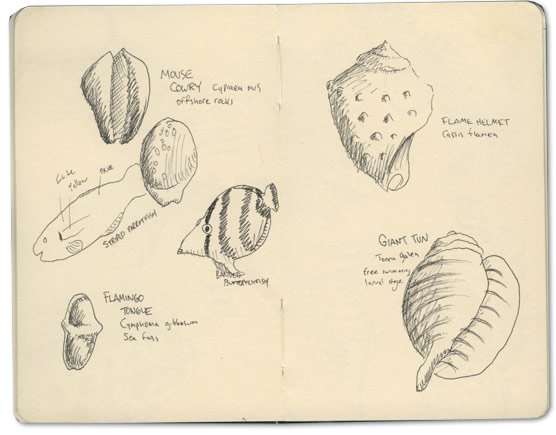 MOUSE
COWRY Cypraea mus
offshore rocks
Yellow
Blue
STRIPED PARROTFISH
BANDED
BUTTERFLYFISH
FLAMINGO
TONGUE
Cymphoma gibbosum
Sea fans
FLAME HELMET
Cassis flamea
GIANT TUN
Tonna galea
free swimming
larval stage